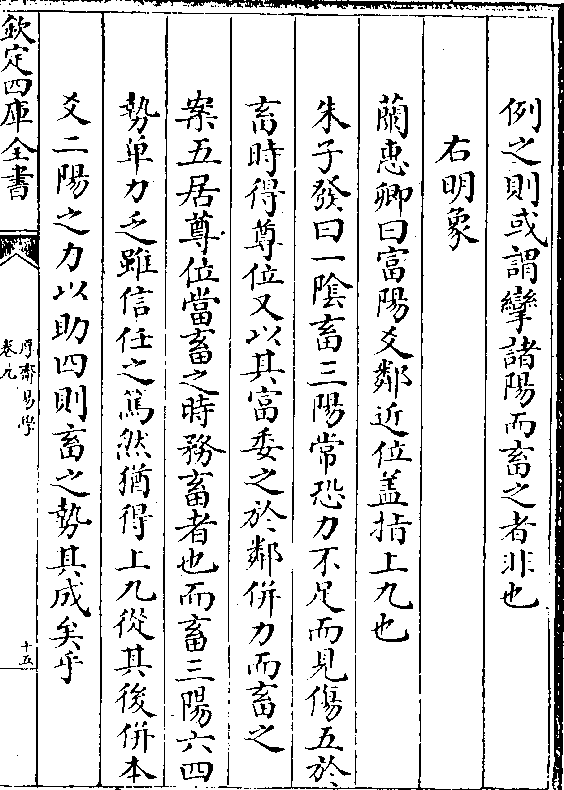 例之則或謂攣諸陽而畜之者非也
右明象
蘭惠卿曰富陽爻鄰近位蓋指上九也
朱子發曰一陰畜三陽常恐力不足而見傷五於
畜時得尊位又以其富委之於鄰併力而畜之
案五居尊位當畜之時務畜者也而畜三陽六四
勢单力乏雖信任之篤然猶得上九從其後併本
爻二陽之力以助四則畜之勢其成矣乎
欽定四庫全書
厚齋易學
卷九
十五